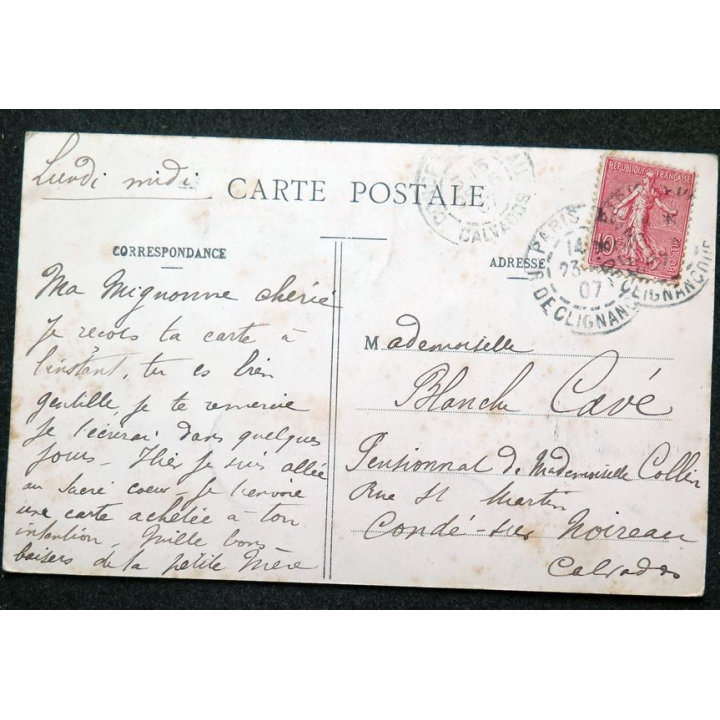 Lundi midi
CARTE POSTALE
CORRESPONDANCE
Ma Mignonne chérie
Je reçois ta carte à
l'instant, tu es bien
gentille, je te remercie
je t'écrirai dans quelques
jours - Hier je suis allée
au Sacré coeur - Je t'envoie
une carte achetée à ton
intention - Mille bons
baisers de ta petite Mère
ADRESSE
Mademoiselle
Blanche Cavé
Pensionnat de Mademoiselle Collin
Rue St Martin
Condé-sur Noireau
Calvados
CALVADOS
REPUBLIQUE FRANÇAISE
POSTES
PARIS
14
23
07
R. DE CLIGNANCOURT